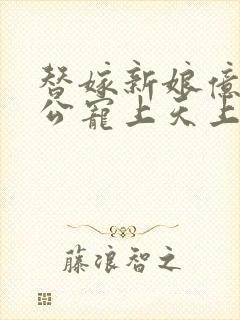 替嫁新娘億
公寵上天上
藤浪智之